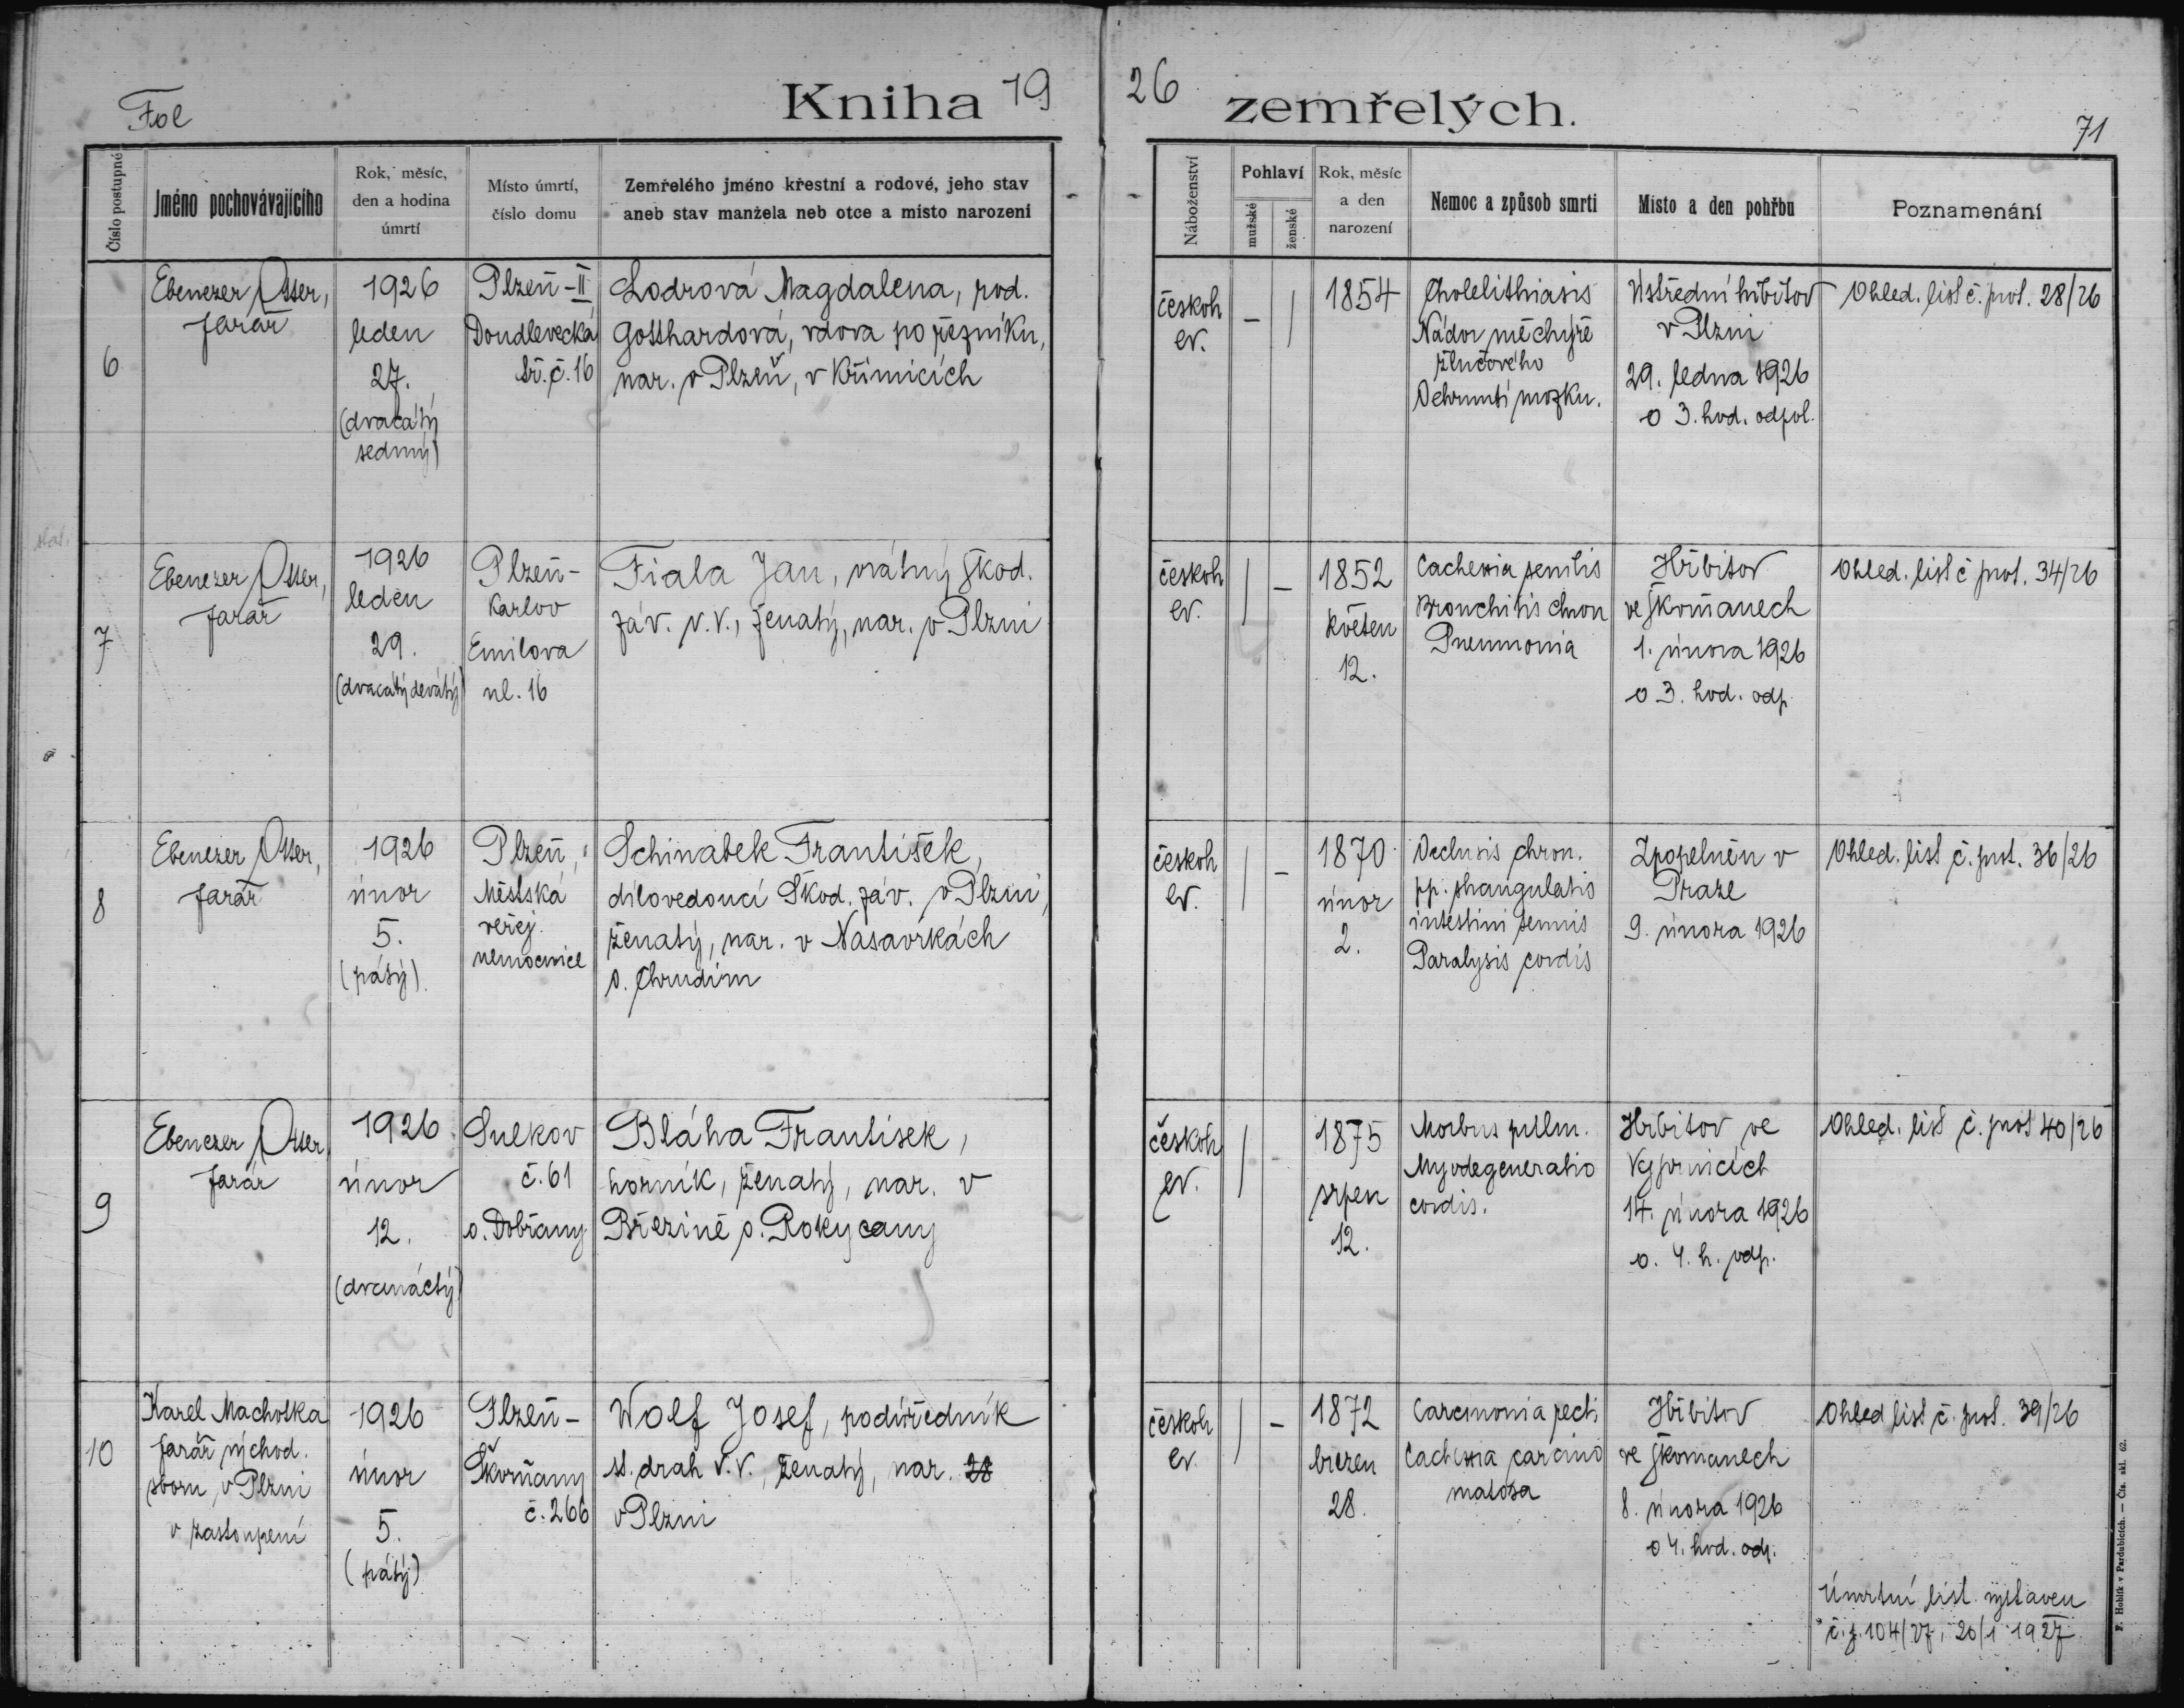 Fol
Kniha 19 26 zemřelých.
71
Číslo postupné
Jméno pochovávajícího
Rok, měsíc,
den a hodina
úmrtí
Místo úmrtí,
číslo domu
Zemřelého jméno křestní a rodové, jeho stav
aneb stav manžela neb otce a místo narození
Náboženství
Pohlaví
mužské
ženské
Rok, měsíc
a den
narození
Nemoc a způsob smrti
Místo a den pohřbu
Poznamenání
6
Ebenezer Otter,
farář
1926
leden
27.
(dvacátý
sedmý)
Plzeň-II
Doudlevecká
tř. č. 16
Lodrová Magdalena, rod.
Gotthardová, vdova po řezníku,
nar. v Plzeň, v Křimicích
českob
ev.
–
|
1854
Cholelithiasis
Nádor měchýře
žlučového
Ochrnutí mozku.
Ústřední hřbitov
v Plzni
29. ledna 1926
o 3. hod. odpol.
Ohled. list č. prot. 28/26
7
Ebenezer Otter,
farář
1926
leden
29.
(dvacátý devátý)
Plzeň-
Karlov
Emilova
ul. 16
Fiala Jan, vrátný Škod.
záv. v.v., ženatý, nar. v Plzni
českob
ev.
|
–
1852
květen
12.
Cachexia senilis
Bronchitis chron
Pneumonia
Hřbitov
ve Škvrňanech
1. února 1926
o 3. hod. odp.
Ohled. list č prot. 34/26
8
Ebenezer Otter,
farář
1926
únor
5.
(pátý).
Plzeň,
Městská
veřej.
nemocnice
Schinabek František,
dílovedoucí Škod. záv. v Plzni,
ženatý, nar. v Nasavrkách
o. Chrudim
českob
ev.
|
–
1870
únor
2.
Occlusis chron.
pp. strangulatio
intestini tenuis
Paralysis cordis
Zpopelněn v
Praze
9. února 1926
Ohled. list č. prot. 36/26
9
Ebenezer Otter,
farář
1926
únor
12.
(dvanáctý)
Sulkov
č. 61
o. Dobřany
Bláha František,
horník, ženatý, nar. v
Březině o. Rokycany
českob
ev.
|
1875
srpen
12.
Morbus pulm.
Myodegeneratio
cordis.
Hřbitov ve
Vejprnicích
14. února 1926
o. 4. h. odp.
Ohled. list č. prot 40/26
10
Karel Machotka
farář východ.
sboru v Plzni
v zastoupení
1926
únor
5.
(pátý)
Plzeň-
Škvrňany
č. 266
Wolf Josef, podúředník
st. drah v.v., ženatý, nar. 28
v Plzni
českob
ev.
|
–
1872
březen
28.
Carcinomia recti
Cachexia carcino
matosa
Hřbitov
ve Škvrnanech
8. února 1926
o 4. hod. odp.
Ohled list č. prot. 39/26
Úmrtní list vystaven
č. j. 104/27, 20/1 1927
F. Hoblík v Pardubicích. — Čís. skl. 62.